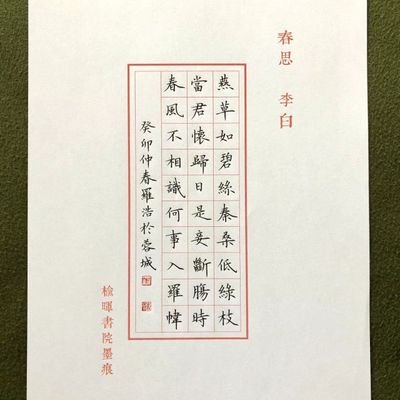 春思 李白
燕草如碧絲秦桑低綠枝
當君懷歸日是妾斷腸時
春風不相識何事入羅幃
癸卯仲春羅浩於蓉城
檢暉書院墨痕